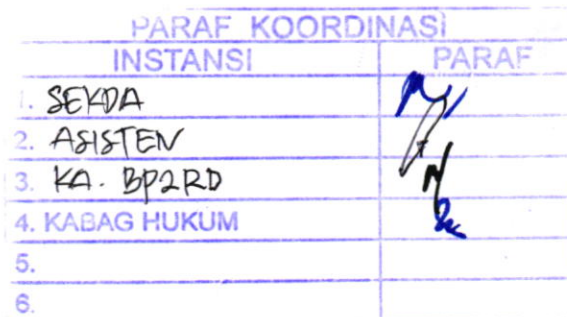 PARAF KOORDINASI
INSTANSI PARAF
1. SEKDA
2. ASISTEN
3. KA. BP2RD
4. KABAG HUKUM
5.
6.